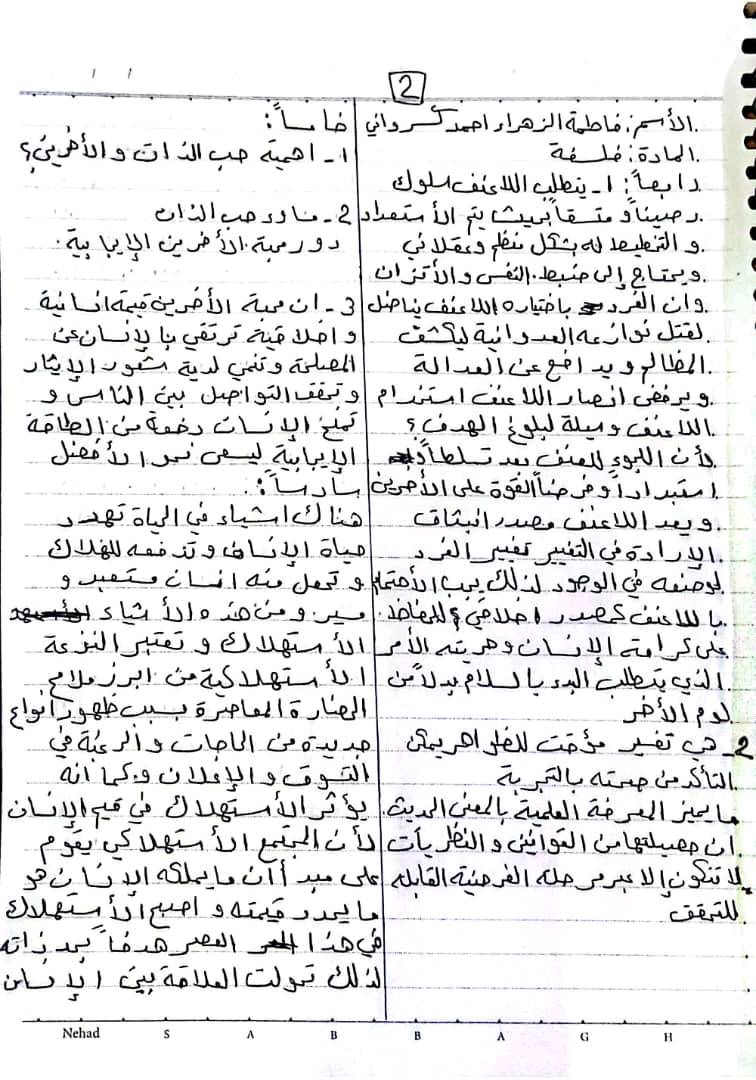 2
الأسم: فاطمة الزهراء احمد كرواني
المادة: فلسفة
رابعاً: 1- يتطلب اللاعنف سلوك
رصيناً و متسقاً بحيث يتم الأستعداد
و التخطيط له بشكل منظم وعقلاني
ويحتاج إلى ضبط النفس والأتزان
وان الفرد باختياره اللاعنف يناضل
لقتل نوازعه العدوانية ليكشف
المظالم ويدافع عن العدالة
ويرفض انصار اللاعنف استخدام
اللاعنف وسيلة لبلوغ الهدف؟
لأن اللجوء للعنف يعد تسلطاً
استبداداً وفرضاً القوة على الأخرين
ويعد اللاعنف مصدر انبثاق
الإرادة في التغيير تغيير الفرد
لوضعه في الوجود لذلك يجب الأهتمام
باللاعنف كمصدر اخلاقي؟ للحفاظ
على كرامة الإنسان وحريته الأمر
الذي يتطلب البدء بالسلام بدلاً من
لوم الأخر
2- هي تفسير مؤقت للظواهر يمكن
التأكد من صحته بالتجربة
ما يميز المعرفة العلمية بالمعنى الحديث
ان حصيلتها من القوانين و النظريات
لا تتكون إلا عبر مرحلة الفرضية القابلة
للتحقق
خامساً:
1- اهمية حب الذات و الأخرين؟
2- مناور حب الذات
دور محبة الأخرين الإيجابية
3- ان محبة الأخرين قيمة انسانية
و اخلاقية ترتقي بالإنسان عن
المصلحة وتنمي لدية شعور الإيثار
وتحقق التواصل بين الناس و
تمنح الإنسان دفعة من الطاقة
الإيجابية ليسعى نحو الأفضل
سادساً:
هناك اشياء في الحياة تهدد
حياة الإنسان و تدفعه للهلاك
و تجعل منه انسان مستعبد و
مسير ومن هذه الأشياء
الأستهلاك و تعتبر النزعة
الأستهلاكية من ابرز ملامح
الحضارة المعاصرة بسبب ظهور أنواع
جديدة من الحاجات والرغبة في
التسوق و الإعلان وكما أنه
يؤثر الأستهلاك في قيم الإنسان
لأن المجتمع الأستهلاكي يقوم
على مبدأ أن ما يملكه الإنسان هو
ما يحدد قيمته و اصبح الأستهلاك
في هذا العصر هدفاً بحد ذاته
لذلك تحولت العلاقة بين الإنسان
Nehad S A B B A G H